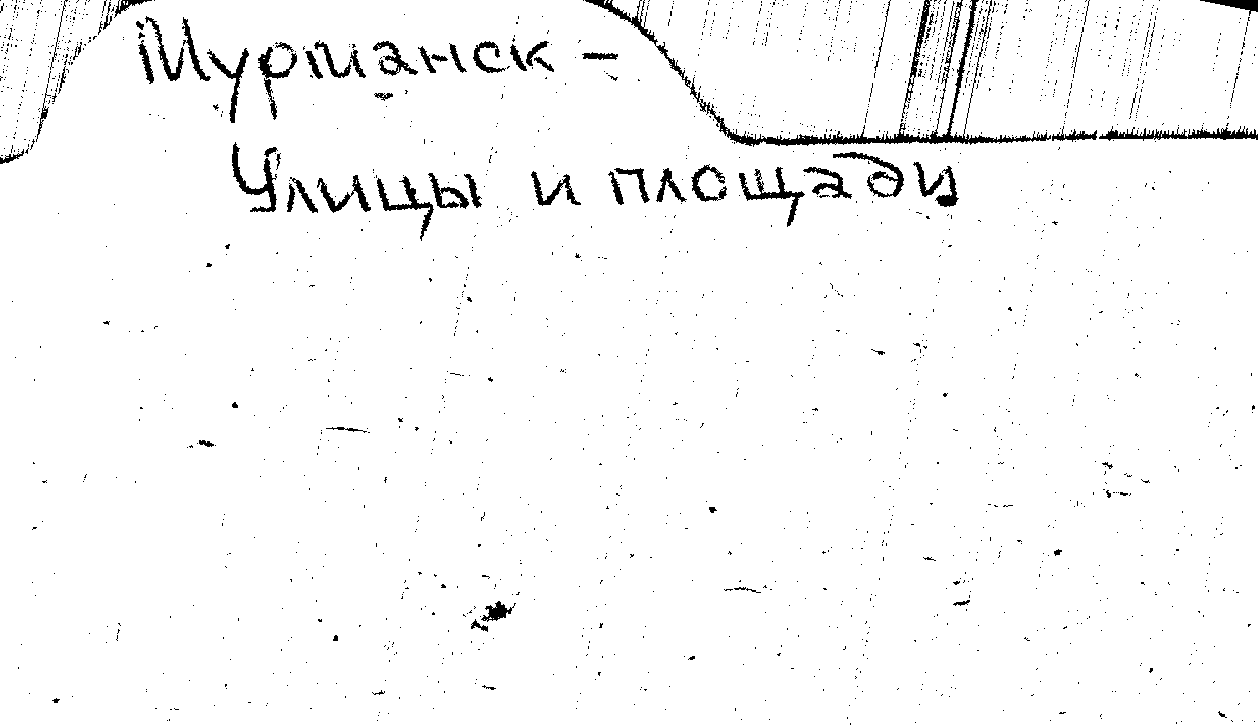 Мурманск –
Улицы и площади